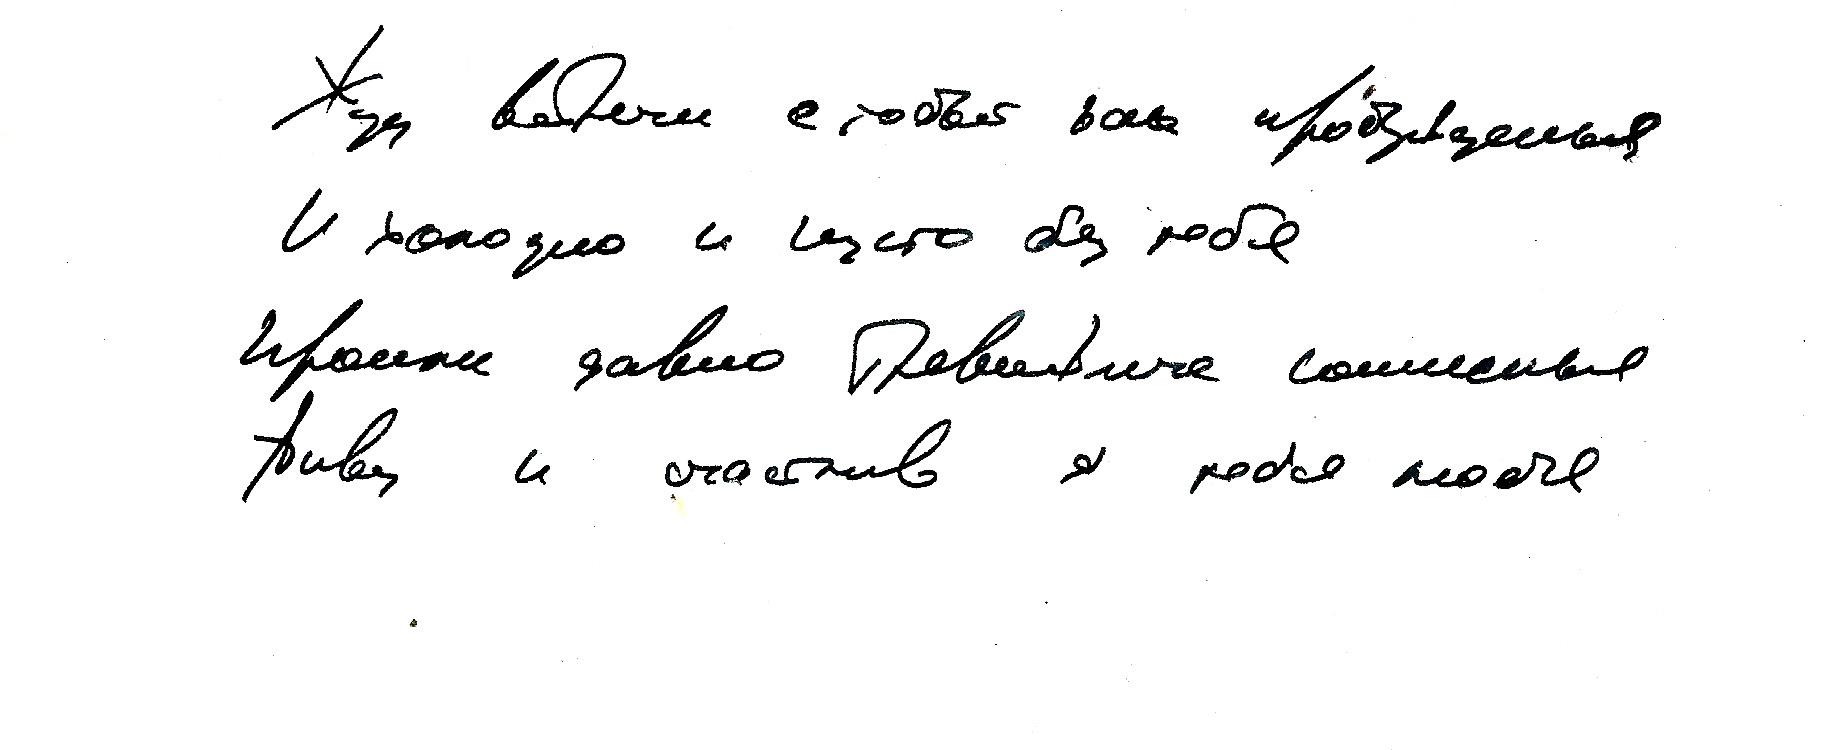 Жду встречи с тобой как пробужденья
И холодно и пусто без тебя
Прошли давно сомненья
Живу и счастлив я тебя любя